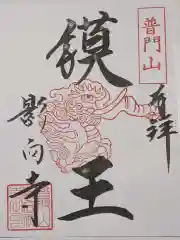 普門山
奉拝
獏王
影向寺